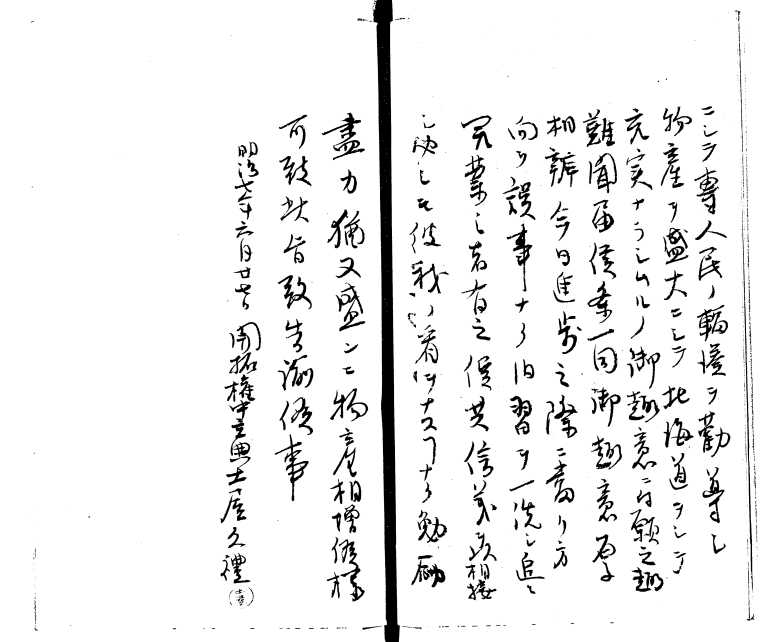 ニシテ專人民ノ輻湊ヲ勸導シ
物産ヲ盛大ニシテ北海道ヲシテ
充実ナラシムルノ御趣意ニ付願之趣
難聞届候条一同御趣意厚
相辨今日進歩之際ニ當リ方
向ヲ誤事ナク旧習ヲ一洗シ追々
営業之者有之候共信義ヲ以相接
シ決シテ彼我ノ看ヲナスコナク勉励
盡力猶又盛ンニ物産相増候様
可致此旨致告諭候事
明治七年六月廿七日 開拓權中主典土屋久禮